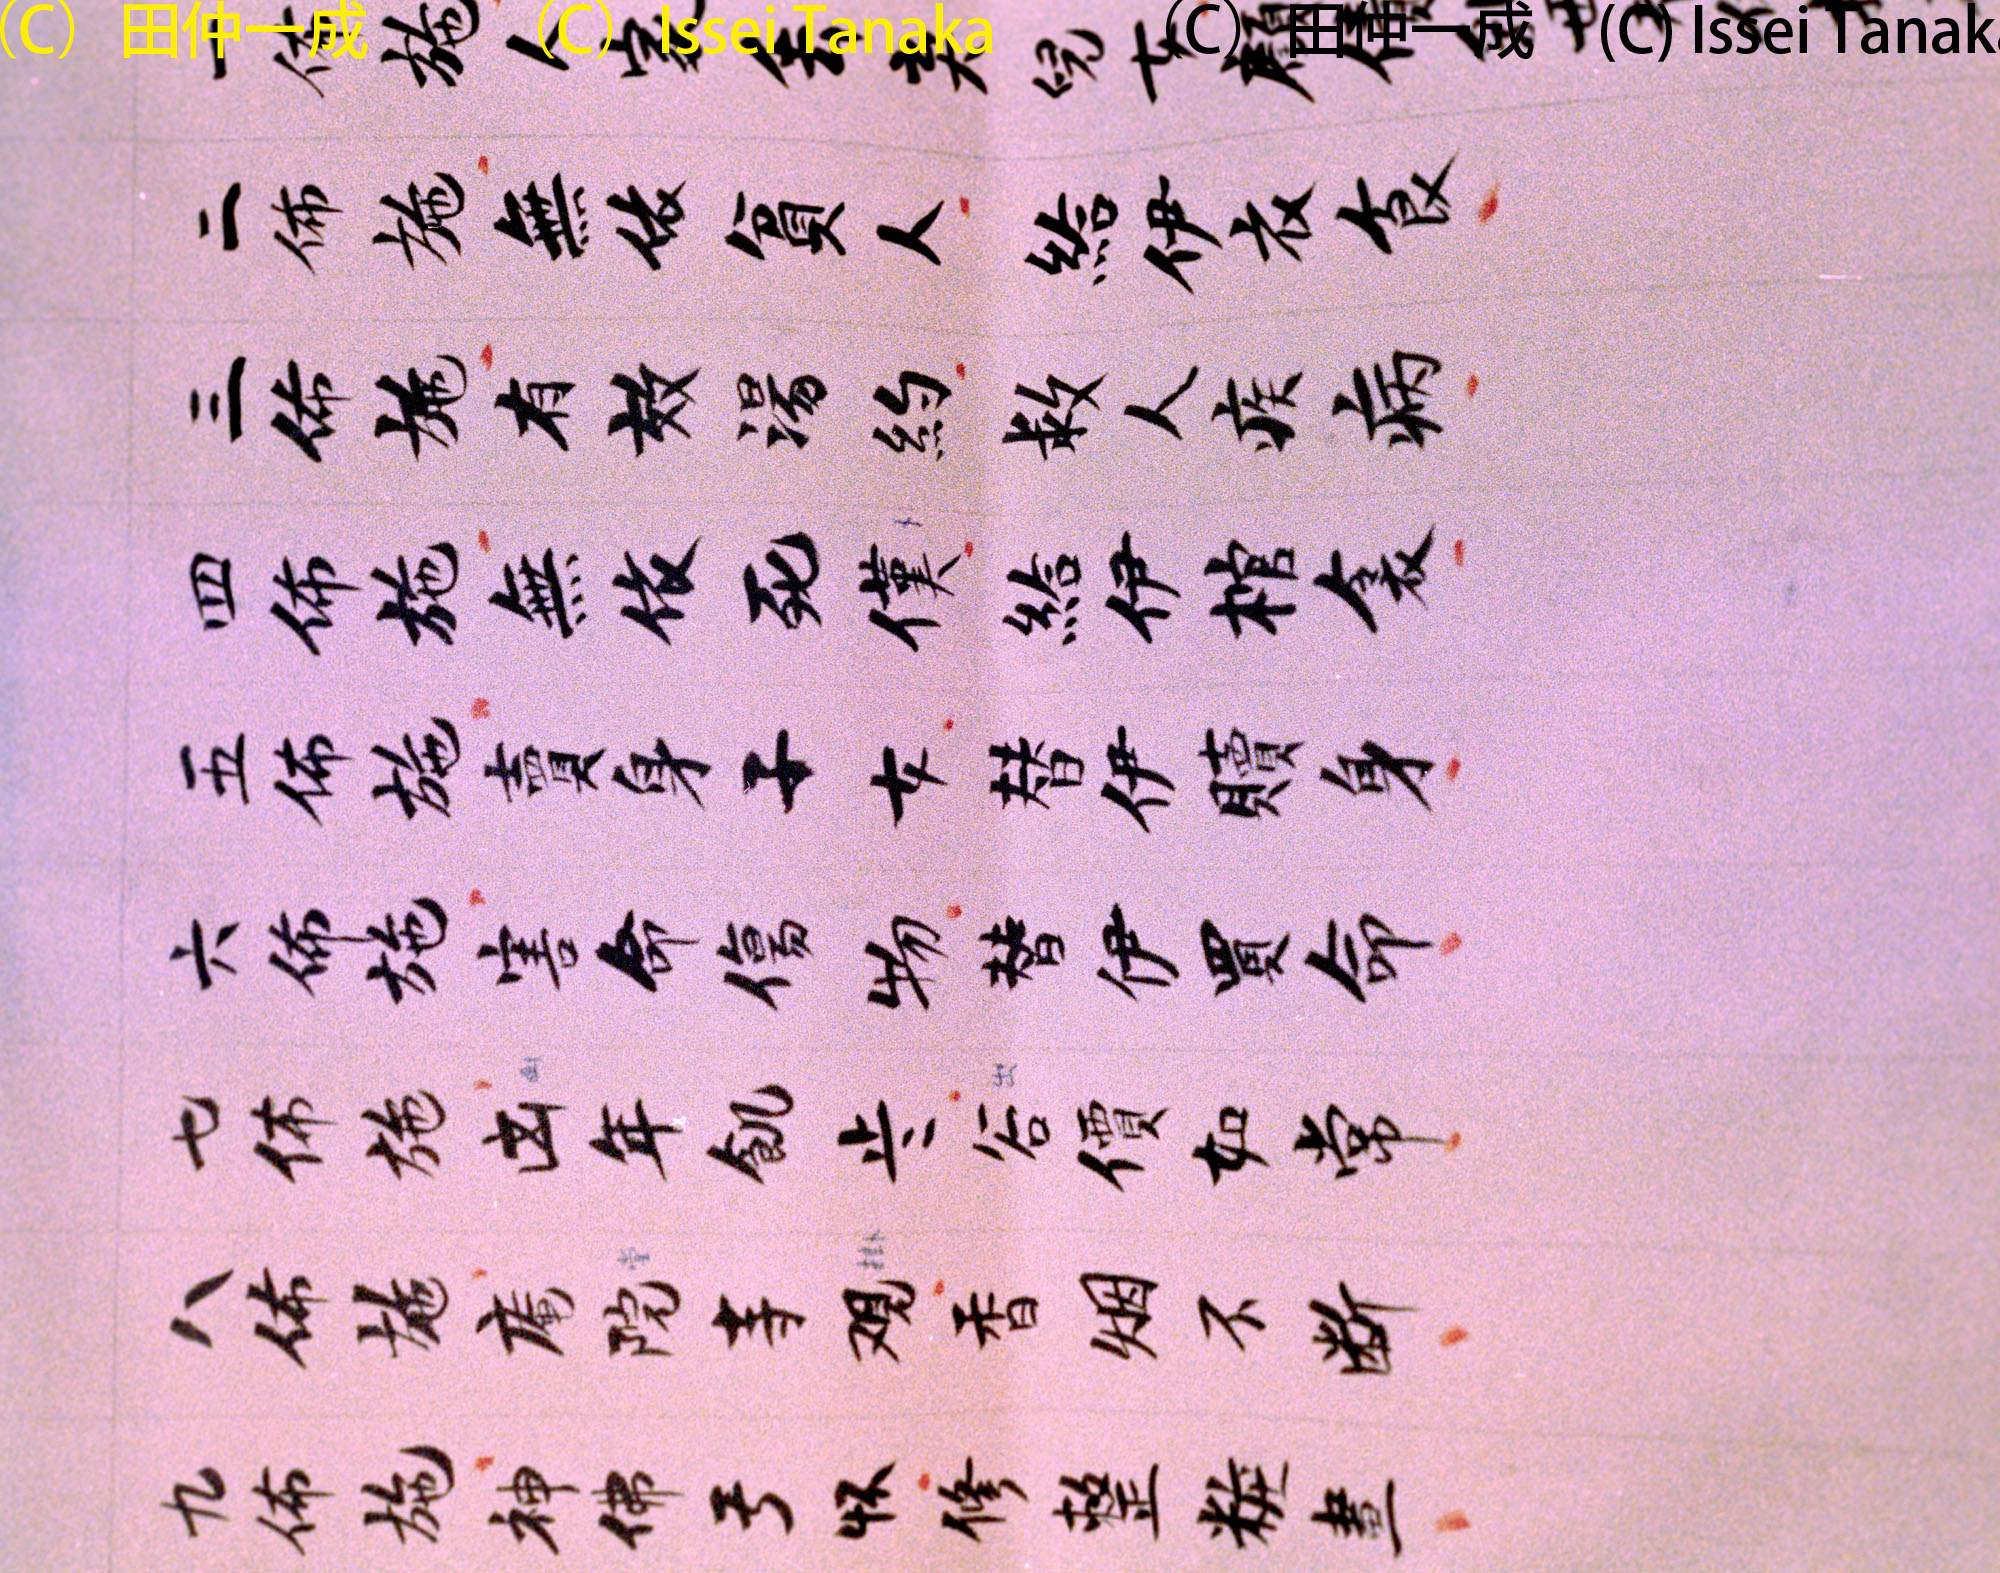 (C) 田仲一成 (C) Issei Tanaka (C) 田仲一成 (C) Issei Tanaka
一佈施人家兒女
二佈施無依貧人給伊衣食
三佈施有效湯約救人疾病
四佈施無依死給伊棺衾
五佈施賣身子女替伊贖身
六佈施害命傷物替伊買命
七佈施凶年飢谷價如常
八佈施庵院寺观香烟不断
九佈施神佛修整粧畫